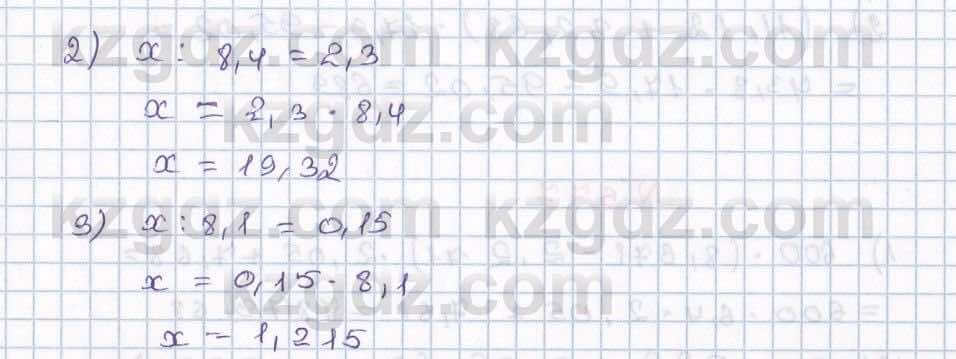 2) x : 8,4 = 2,3
x = 2,3 · 8,4
x = 19,32
3) x : 8,1 = 0,15
x = 0,15 · 8,1
x = 1,215
kzgdz.com kzgdz.com
kzgdz.com
kzgdz.com kzgdz.com
kzgdz.com